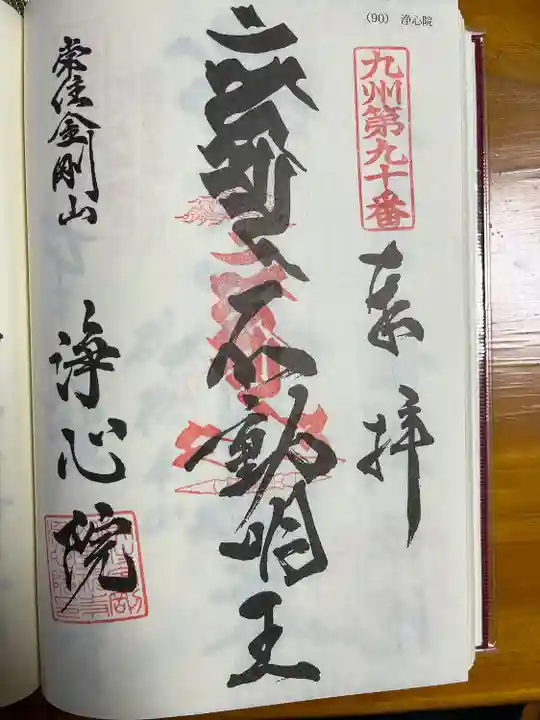 (90) 浄心院
九州第九十番
奉拝
不動明王
常住金剛山
浄心院